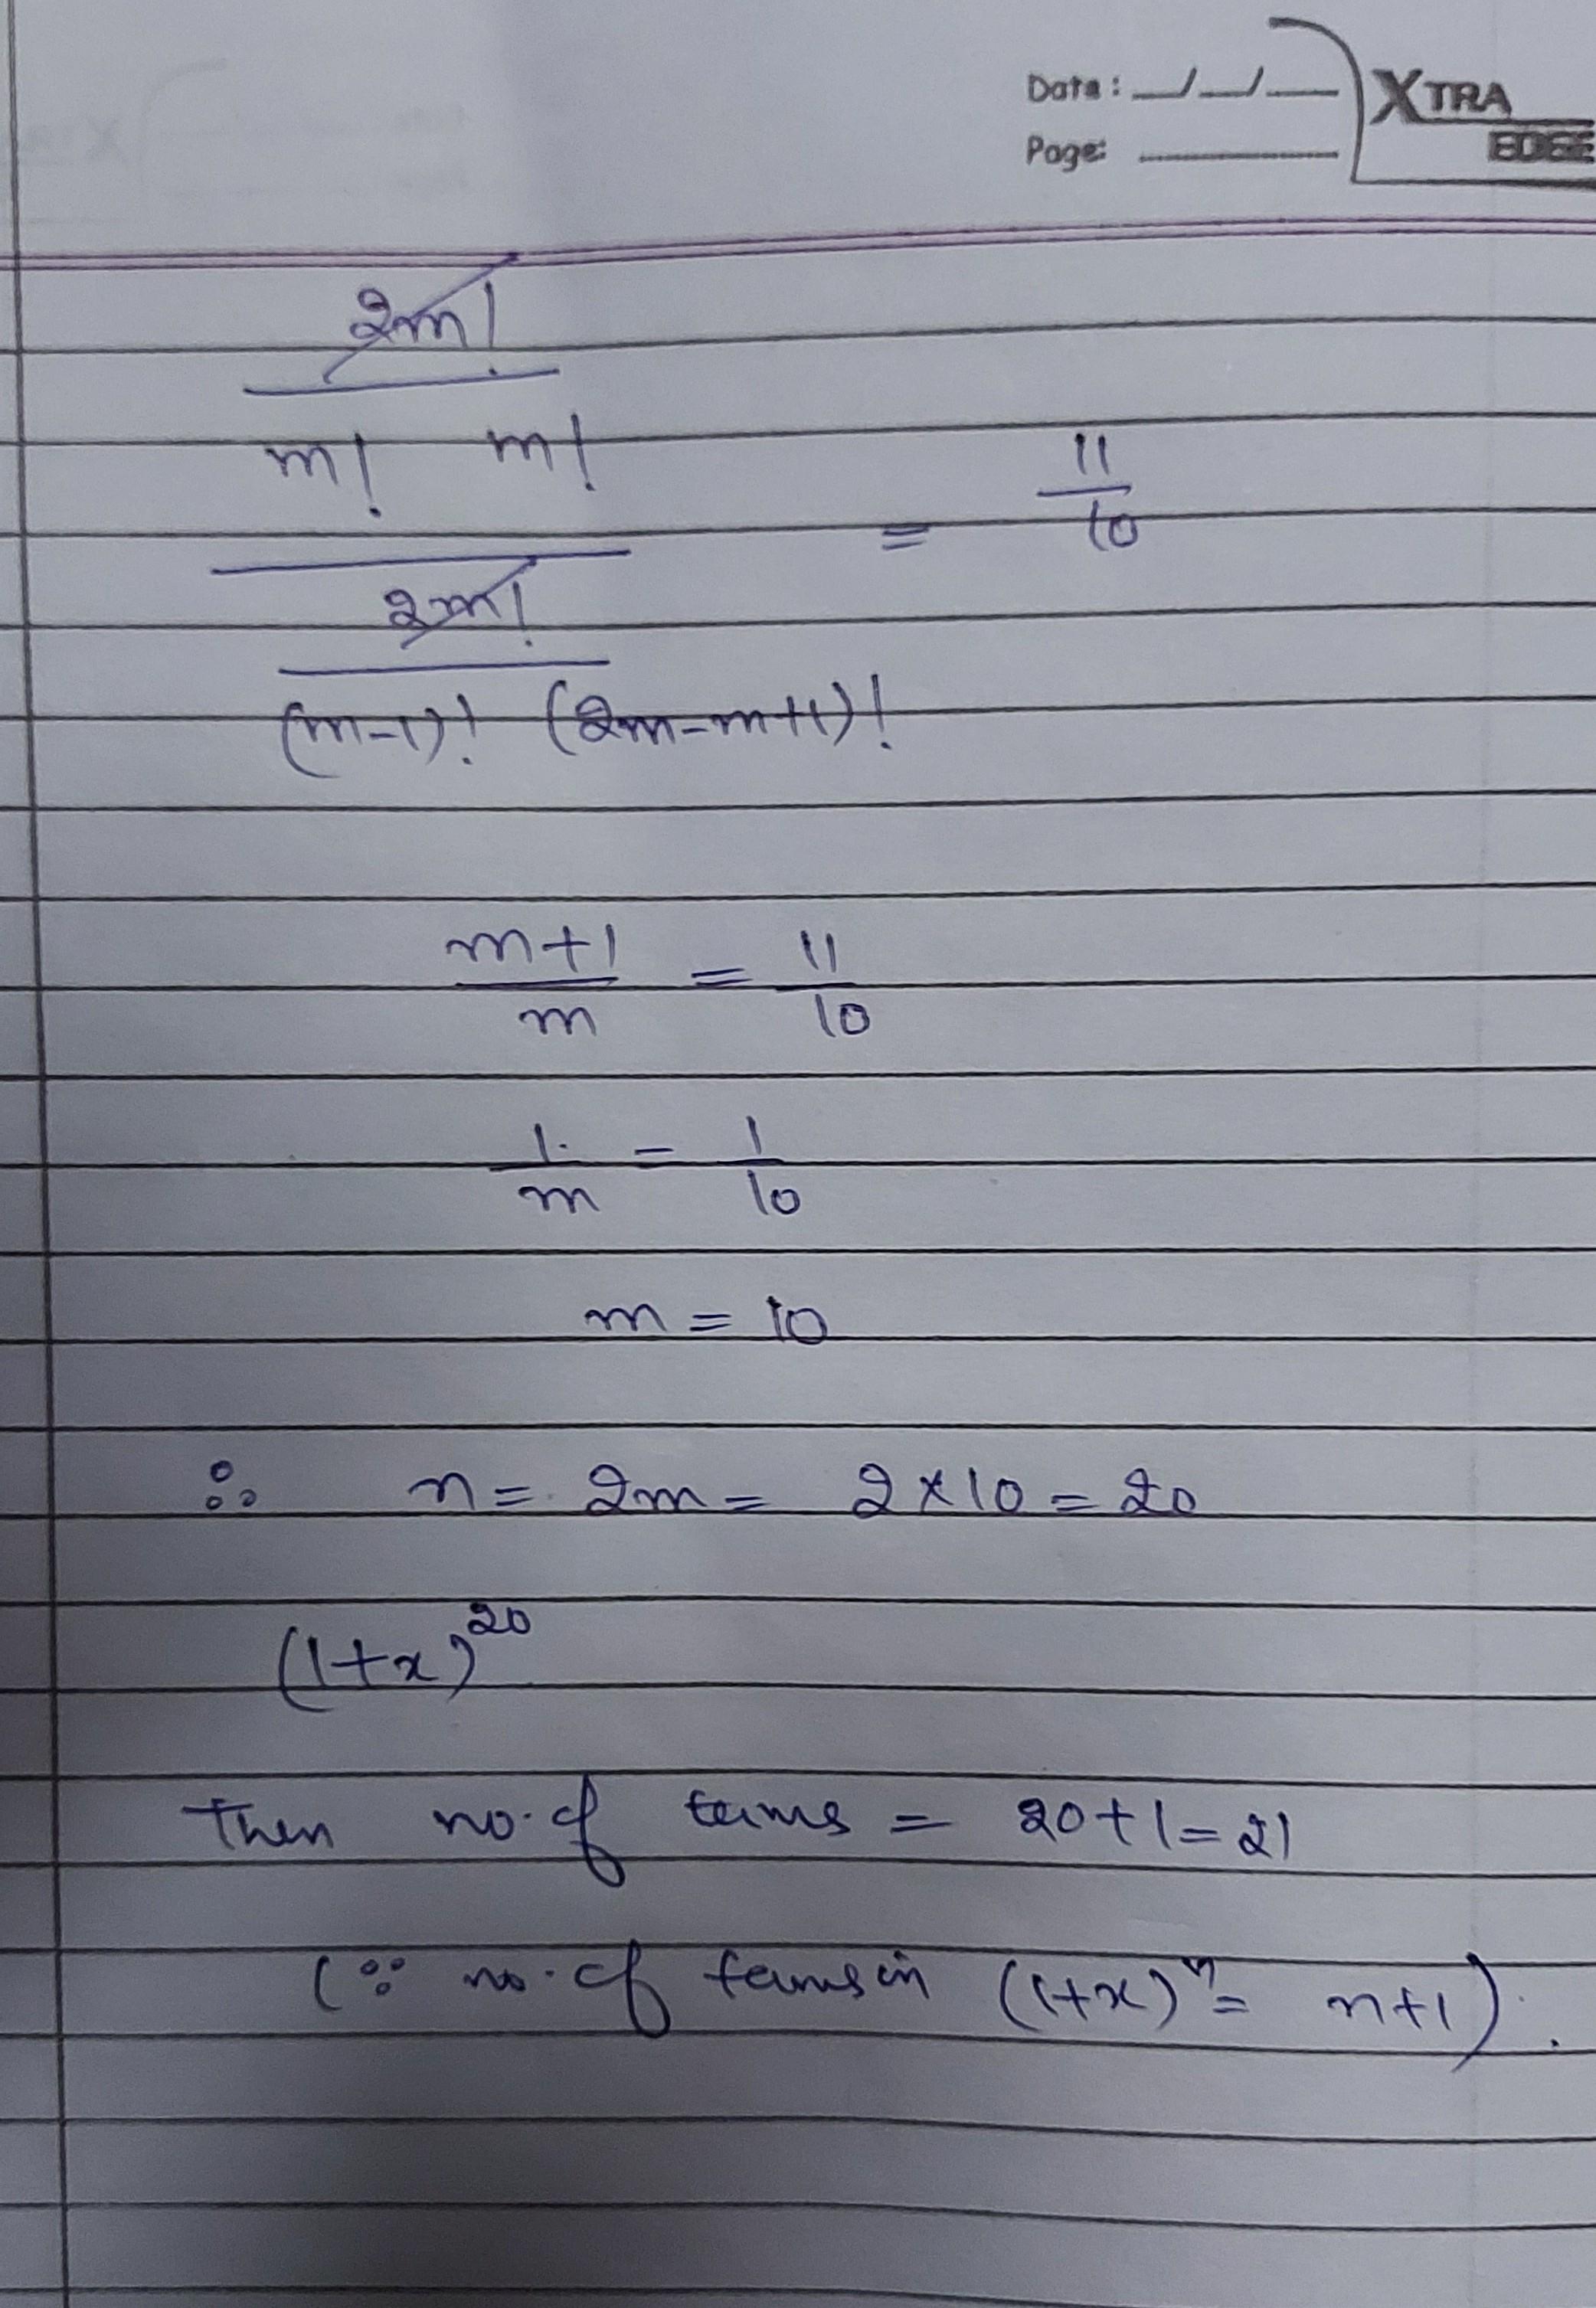 Date: __/__/__ XTRA
Page: ________ EDGE
2m!
m! m!
= 11/10
2m!
(m-1)! (2m-m+1)!
m+1/m = 11/10
1/m = 1/10
m = 10
∴ n = 2m = 2×10 = 20
(1+x)^20
Then no. of terms = 20+1=21
(∵ no. of terms in (1+x)^n = n+1).